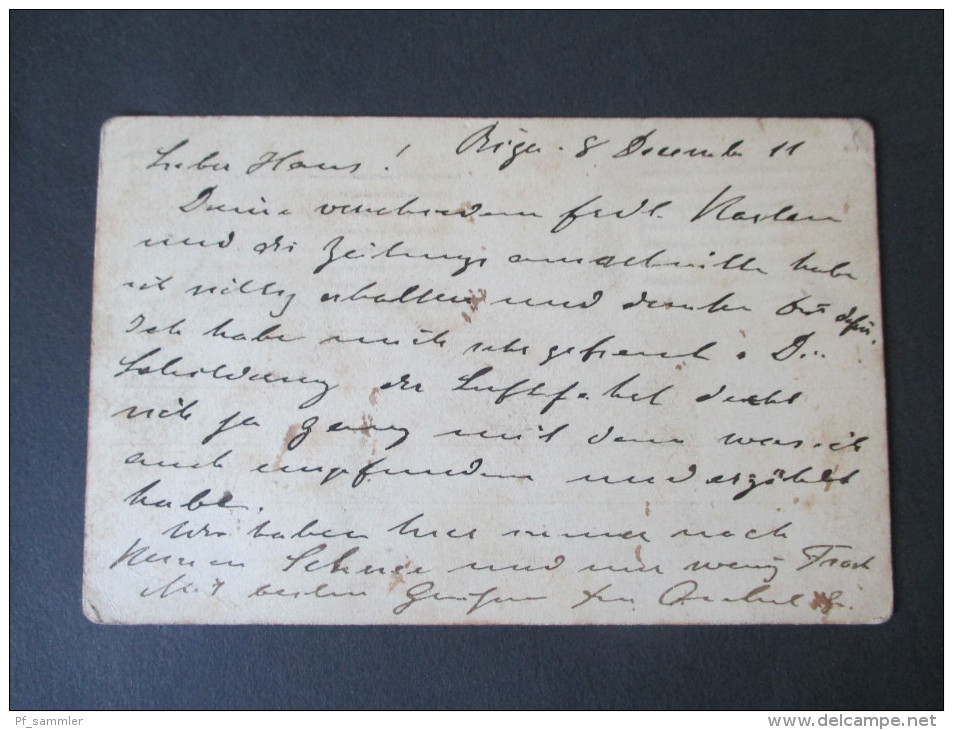 Riga. 8 December 11
Lieber Hans!
Deine verschiedenen frdl. Karten
und die Zeitungsausschnitte habe
ich richtig erhalten und danke Dir dafür.
Ich habe mich sehr gefreut. Die
Schilderung der Luftfahrt deckt
sich ja ganz mit dem was ich
auch empfunden und erzählt
habe.
Wir haben hier immer noch
keinen Schnee und nur wenig Frost
Mit besten Grüßen Dein Onkel
Pf_sammler
www.delcampe.net